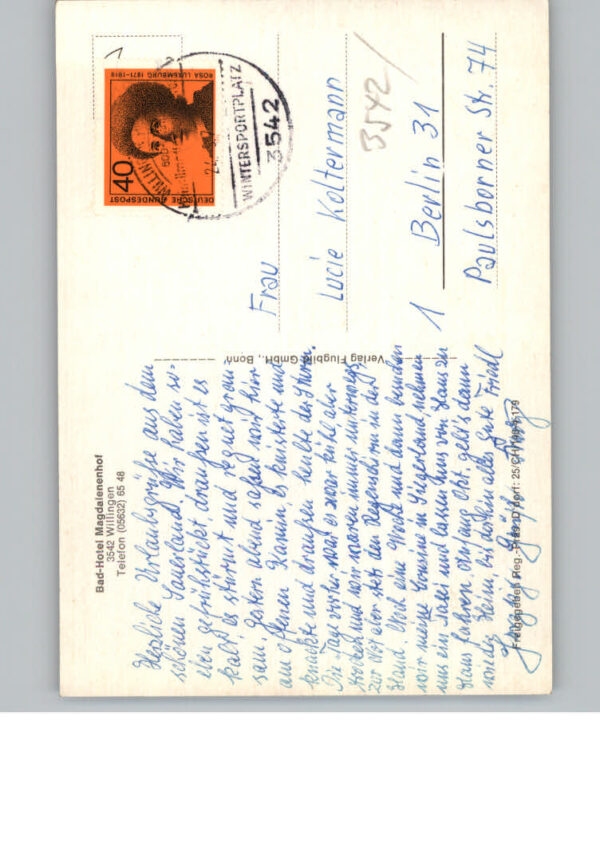 Bad-Hotel Magdalenenhof
3542 Willingen
Telefon (05632) 65 48
Herzliche Urlaubsgrüße aus dem
schönen Sauerland. Wir haben so-
eben gefrühstückt draußen ist es
kalt, es stürmt und regnet grau-
sam. Gestern abend saßen wir hier
am offenen Kamin, es knisterte und
knackte und draußen heulte der Sturm.
Die Tage vorher war es zwar kühl aber
trocken und wir waren immer unterwegs.
Zur Not aber stets den Regenschirm in der
Hand. Noch eine Woche und dann besuchen
wir meine Cousine im Siegerland nehmen
uns ein Taxi und lassen uns von Haus zu
Haus fahren. Anfang Okt. geht's dann
wieder heim, bis dahin alles Gute Friedl
Verlag Flugbild GmbH., Bonn
Freigegeben Reg.-Präs. D'dorf: 25/CH/
179
DEUTSCHE BUNDESPOST
40
ROSA LUXEMBURG 1871-1919
WINTERSPORTPLATZ
3542
3542
Frau
Lucie Koltermann
1 Berlin 31
Paulsborner Str. 74